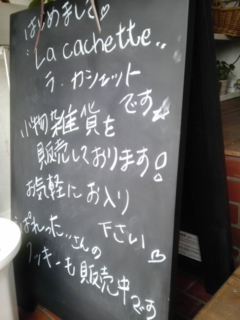 はじめまして♡
La cachette..
ラ・カシェット
です☆
小物雑貨を
販売しております!
お気軽にお入り
下さい♡
ぱれった..さんの
クッキーも販売中です